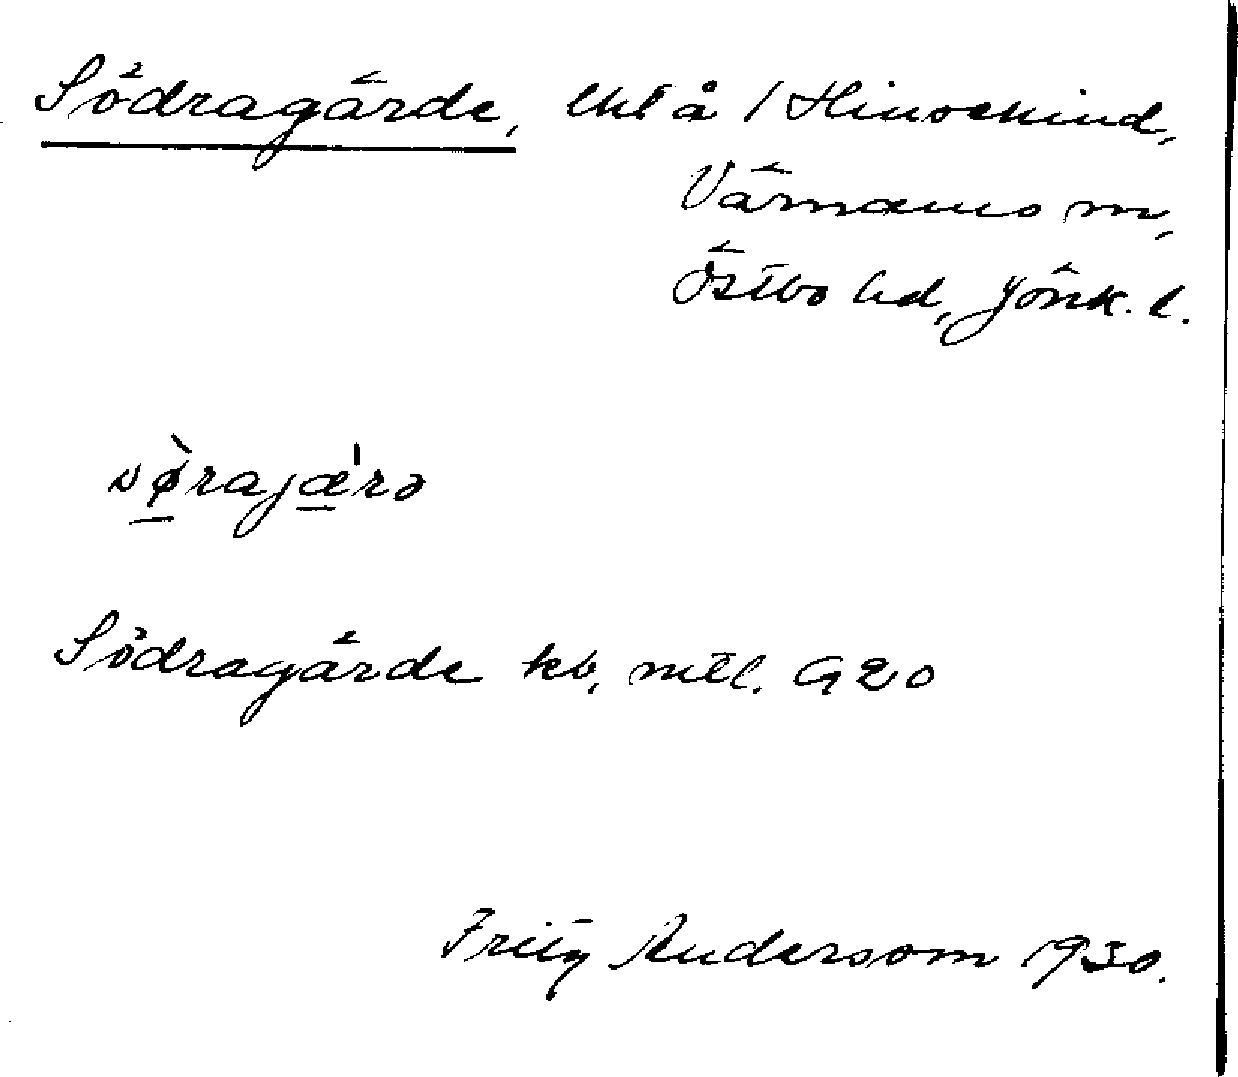 Södragärde, lht å 1 Hinsekind,
Värnamo sn,
Östbo hd, Jönk. l.
sø̀rajæ'rə
Södragärde kb, mtl. G20
Fritz Andersson 1930.